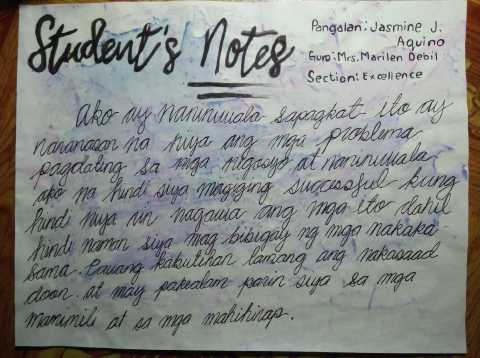 Student's Notes
Pangalan: Jasmine J.
Aquino
Guro: Mrs. Marilen Debil
Section: Excellence
Ako ay naniniwala sapagkat ito ay
naranasan na niya ang mga problema
pagdating sa mga negosyo at naniniwala
ako na hindi siya magiging successful kung
hindi niya rin nagawa ang mga ito dahil
hindi naman siya mag bibigay ng mga nakaka-
sama. Pawang kabutihan lamang ang nakasaad
doon at may pakealam parin siya sa mga
mamimili at sa mga mahihirap.